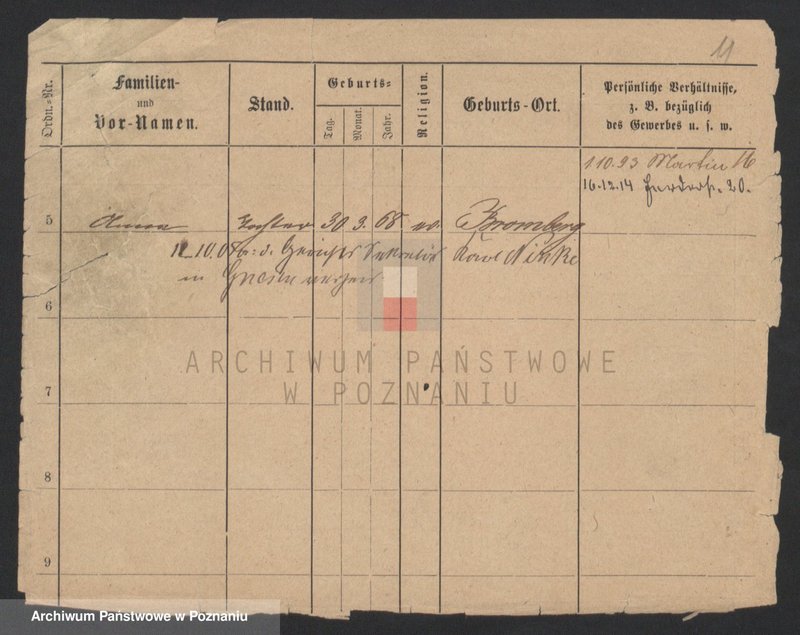 11
Ordn.=Nr.
Familien-
und
Vor-Namen.
Stand.
Geburts=
Tag.
Monat.
Jahr.
Religion.
Geburts-Ort.
Persönliche Verhältnisse,
z. B. bezüglich
des Gewerbes u. s. w.
1.10.93 Martin 16
16.12.14 20.
5
Anna
Tochter
30
3.
68
ev.
Bromberg
10.06 d. Gerichts Sekretär Karl
in Gnesen
6
ARCHIWUM PAŃSTWOWE
W POZNANIU
7
8
9
Archiwum Państwowe w Poznaniu